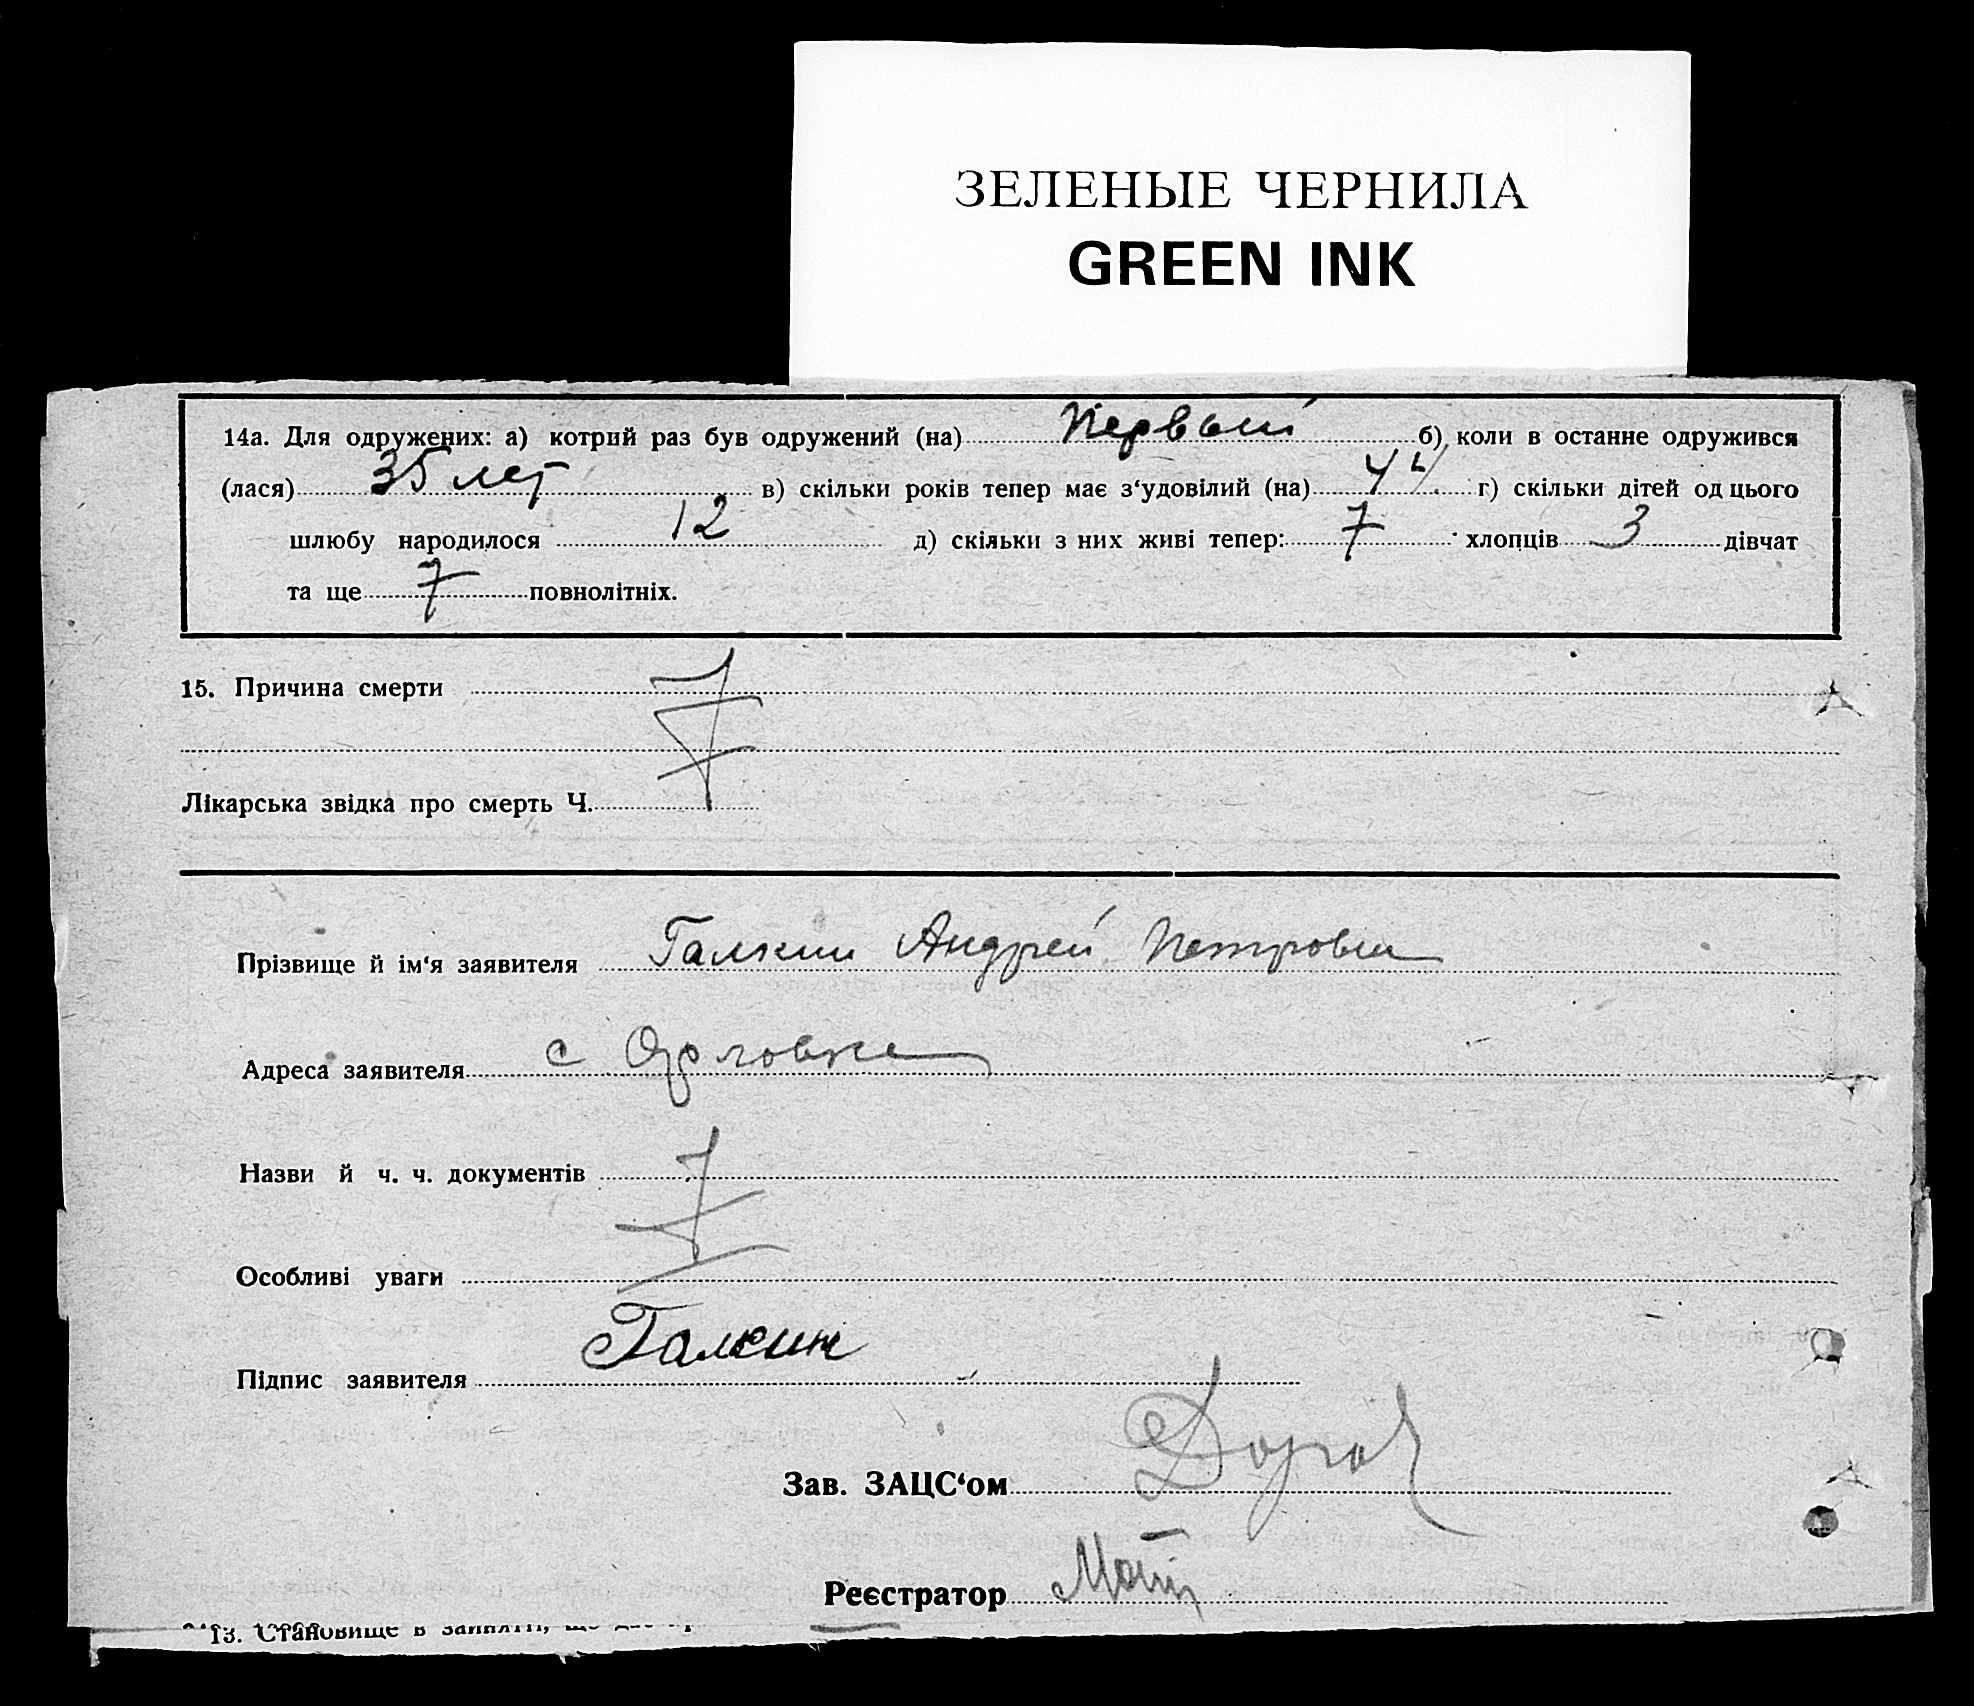 ЗЕЛЕНЫЕ ЧЕРНИЛА
GREEN INK
14а. Для одружених: а) котрий раз був одружений (на) Первый б) коли в останне одружився
(лася) 35 лет в) скільки років тепер має з‘удовілий (на) г) скільки дітей од цього
шлюбу народилося 12 д) скільки з них живі тепер: 7 хлопців 3 дівчат
та ще 7 повнолітніх.
15. Причина смерти
Лікарська звідка про смерть Ч.
Прізвище й ім‘я заявителя Галкин Андрей Петрович
Адреса заявителя с Орловка
Назви й ч. ч. документів
Особливі уваги
Підпис заявителя Галкин
Зав. ЗАЦС‘ом
Реєстратор
13. Становище в занятті, що дає